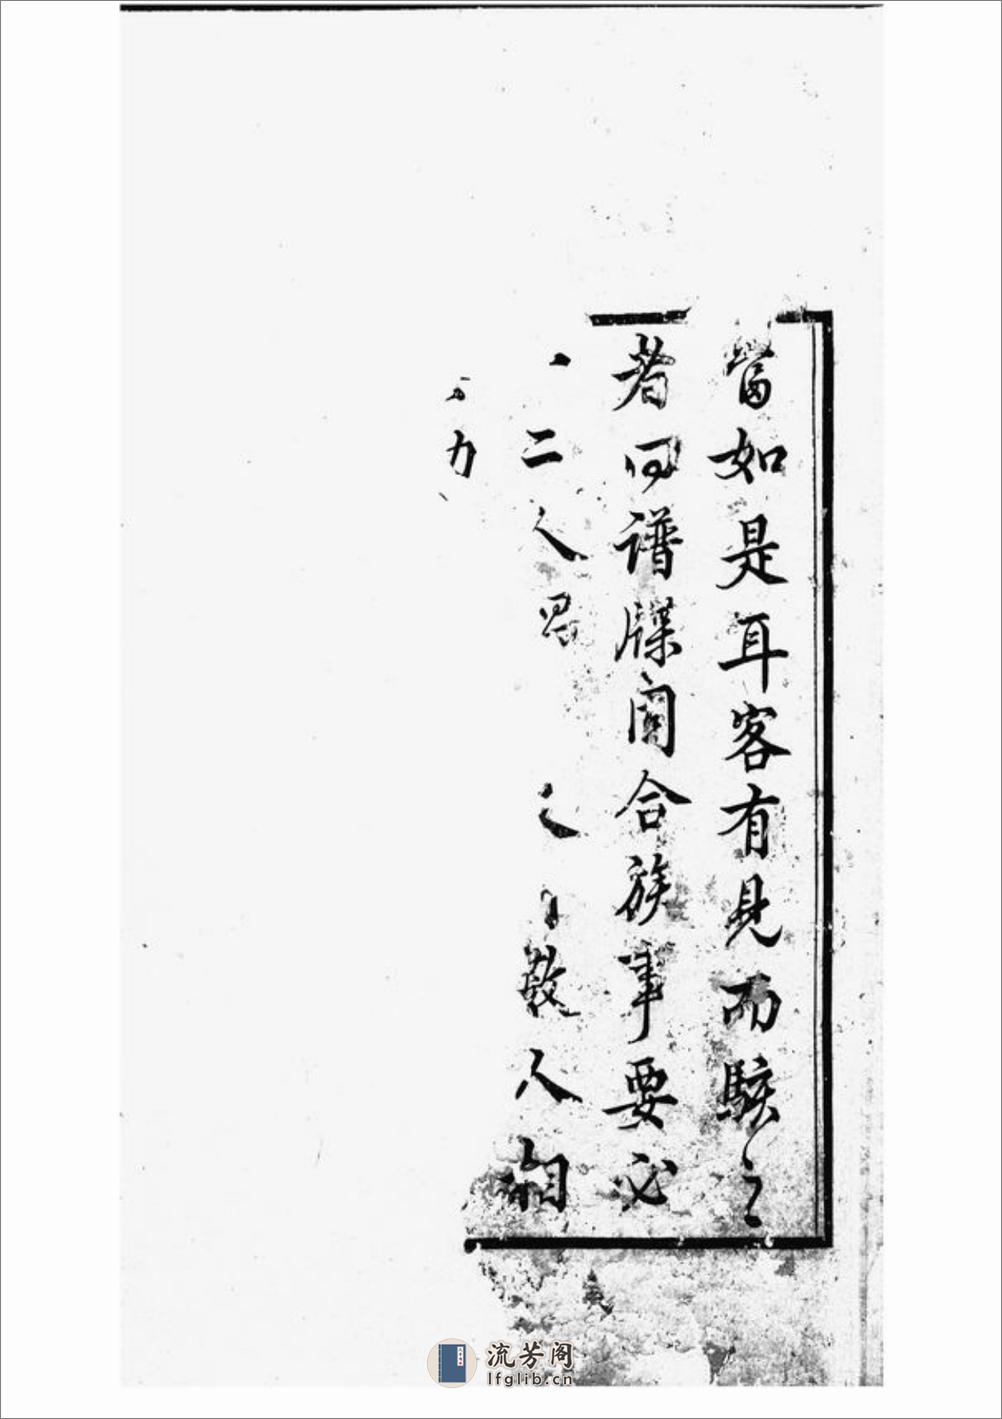 當如是耳客有見而駭之
者曰譜牒闔合族事要必
二人
之 數人相
力
流芳阁
lfglib.cn